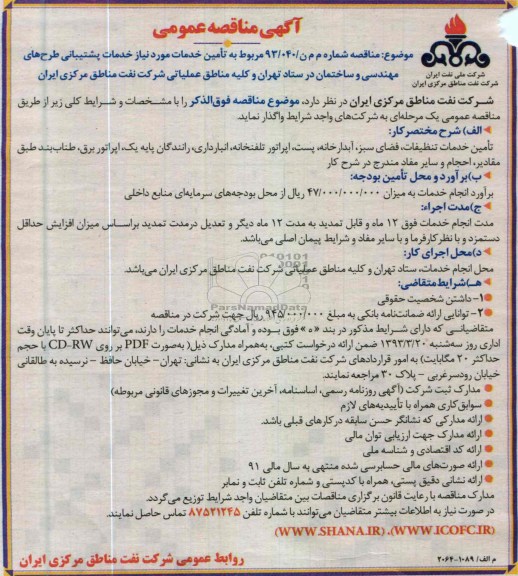 آگهی مناقصه عمومی
شرکت ملی نفت ایران
شرکت نفت مناطق مرکزی ایران
موضوع: مناقصه شماره م م ن/۹۳/۰۴۰ مربوط به تأمین خدمات مورد نیاز خدمات پشتیبانی طرح‌های
مهندسی و ساختمان در ستاد تهران و کلیه مناطق عملیاتی شرکت نفت مناطق مرکزی ایران
شرکت نفت مناطق مرکزی ایران در نظر دارد، موضوع مناقصه فوق‌الذکر را با مشخصات و شرایط کلی زیر از طریق
مناقصه عمومی یک مرحله‌ای به شرکت‌های واجد شرایط واگذار نماید.
الف) شرح مختصر کار:
تأمین خدمات تنظیفات، فضای سبز، آبدارخانه، پست، اپراتور تلفنخانه، انبارداری، رانندگان پایه یک، اپراتور برق، طناب‌بند طبق
مقادیر، احجام و سایر مفاد مندرج در شرح کار
ب) برآورد و محل تأمین بودجه:
برآورد انجام خدمات به میزان ۴۷/۰۰۰/۰۰۰/۰۰۰ ریال از محل بودجه‌های سرمایه‌ای منابع داخلی
ج) مدت اجراء:
مدت انجام خدمات فوق ۱۲ ماه و قابل تمدید به مدت ۱۲ ماه دیگر و تعدیل درمدت تمدید براساس میزان افزایش حداقل
دستمزد و با نظر کارفرما و با سایر مفاد و شرایط پیمان اصلی می‌باشد.
د) محل اجرای کار:
محل انجام خدمات، ستاد تهران و کلیه مناطق عملیاتی شرکت نفت مناطق مرکزی ایران می‌باشد.
هـ) شرایط متقاضی:
۱- داشتن شخصیت حقوقی
۲- توانایی ارائه ضمانتنامه بانکی به مبلغ ۹۴۵/۰۰۰/۰۰۰ ریال جهت شرکت در مناقصه
متقاضیانی که دارای شرایط مذکور در بند «ه» فوق بوده و آمادگی انجام خدمات را دارند، می‌توانند حداکثر تا پایان وقت
اداری روز سه‌شنبه ۱۳۹۳/۳/۲۰ ضمن ارائه درخواست کتبی، به‌همراه مدارک ذیل( به‌صورت PDF بر روی CD-RW با حجم
حداکثر ۲۰ مگابایت) به امور قراردادهای شرکت نفت مناطق مرکزی ایران به نشانی: تهران- خیابان حافظ - نرسیده به طالقانی
خیابان رودسرغربی - پلاک ۳۰ مراجعه نمایند.
مدارک ثبت شرکت (آگهی روزنامه رسمی، اساسنامه، آخرین تغییرات و مجوزهای قانونی مربوطه)
سوابق کاری همراه با تأییدیه‌های لازم
ارائه مدارکی که نشانگر حسن سابقه درکارهای قبلی باشد.
ارائه مدارک جهت ارزیابی توان مالی
ارائه کد اقتصادی و شناسه ملی
ارائه صورت‌های مالی حسابرسی شده منتهی به سال مالی ۹۱
ارائه نشانی دقیق پستی، همراه با کدپستی و شماره تلفن ثابت و نمابر
مدارک مناقصه با رعایت قانون برگزاری مناقصات بین متقاضیان واجد شرایط توزیع می‌گردد.
در صورت نیاز به اطلاعات بیشتر متقاضیان می‌توانند با شماره تلفن ۸۷۵۲۱۲۴۵ تماس حاصل نمایند.
(WWW.SHANA.IR) ،(WWW.ICOFC.IR)
روابط عمومی شرکت نفت مناطق مرکزی ایران
م الف/ ۱۰۸۹-۲۰۶۴
ParsNamadData